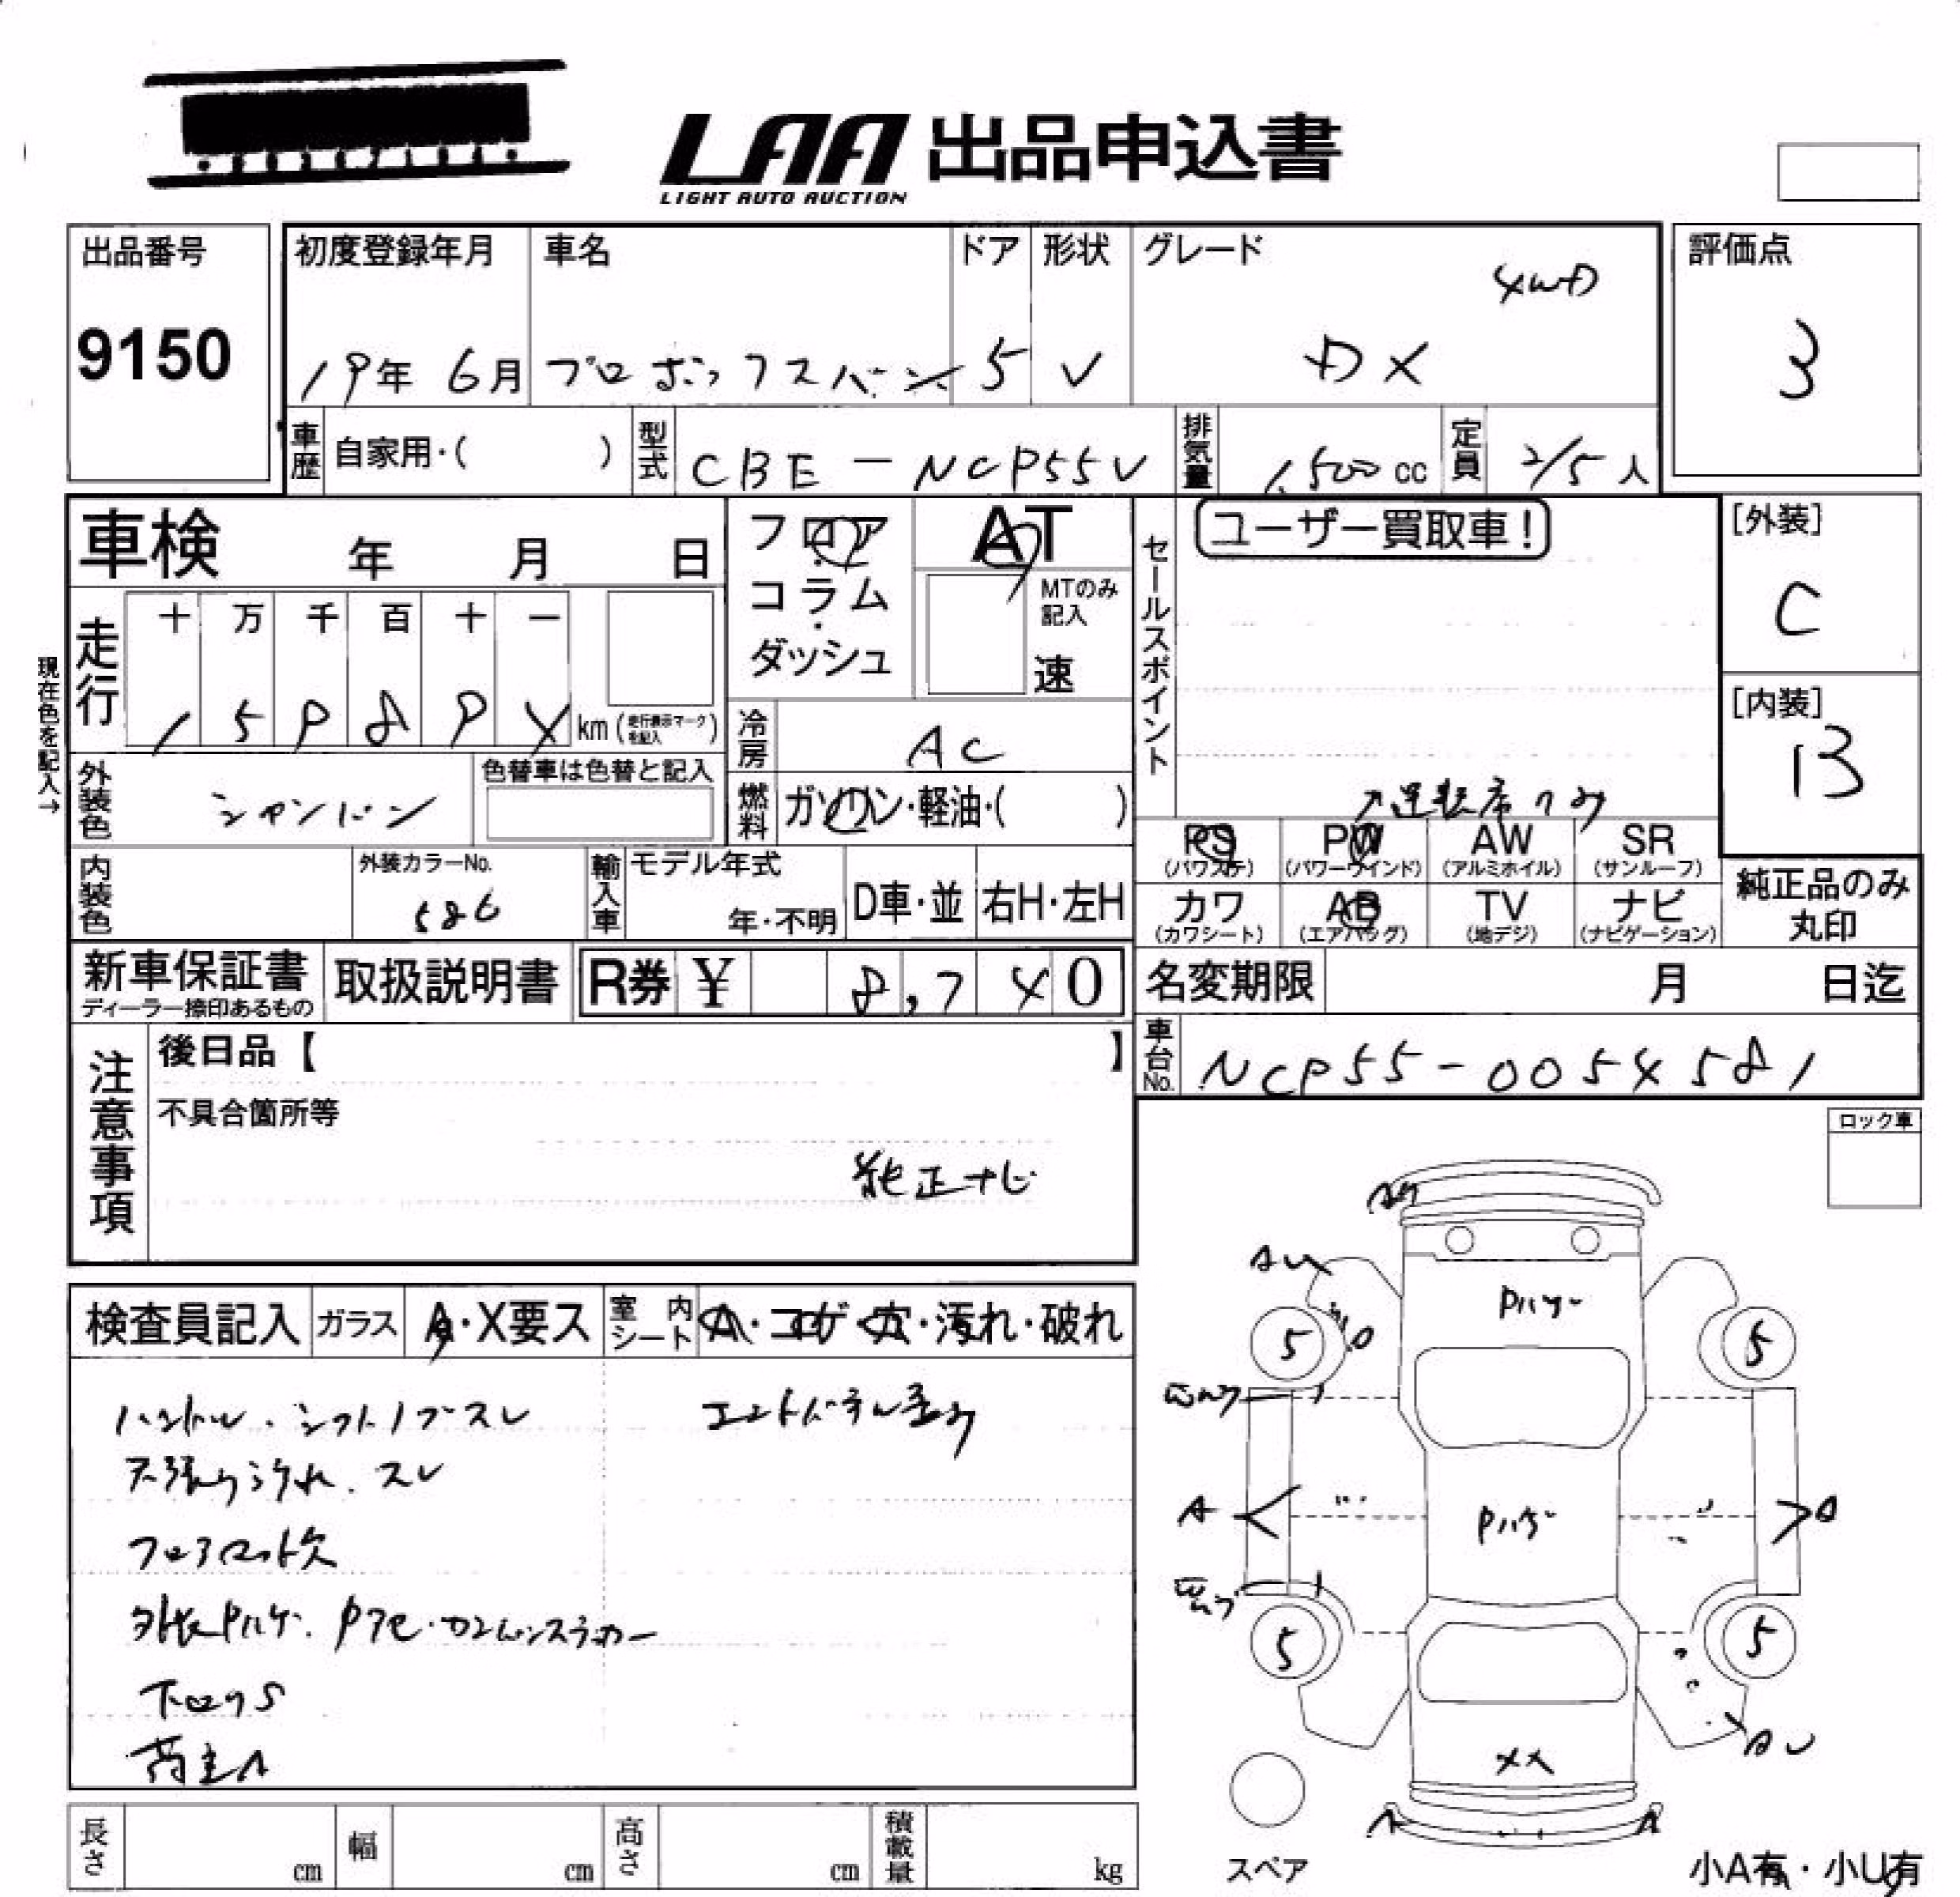 LAA 出品申込書
LIGHT AUTO AUCTION
出品番号
9150
初度登録年月
19年 6月
車名
プロボックスバン
ドア
5
形状
V
グレード
4WD
DX
評価点
3
車歴
自家用・( )
型式
CBE-NCP55V
排気量
1,500 cc
定員
2/5 人
車検 年 月 日
フロア
・
コラム
・
ダッシュ
AT
MTのみ
記入
速
セールスポイント
ユーザー買取車!
[外装]
C
[内装]
B
現在色を記入→
走行
十 万 千 百 十 一
km (走行表示マークを記入)
冷房
AC
外装色
シャンパン
色替車は色替と記入
燃料
ガソリン・軽油・( )
↗運転席のみ
PS
(パワステ)
PW
(パワーウインド)
AW
(アルミホイル)
SR
(サンルーフ)
カワ
(カワシート)
AB
(エアバッグ)
TV
(地デジ)
ナビ
(ナビゲーション)
純正品のみ
丸印
内装色
外装カラーNo.
586
輸入車
モデル年式
年・不明
D車・並
右H・左H
新車保証書
ディーラー捺印あるもの
取扱説明書
R券 ¥ 8,740
名変期限 月 日迄
車台No.
NCP55-0054581
注意事項
後日品【 】
不具合箇所等
純正ナビ
ロック車
検査員記入
ガラス
A・X要ス
室内シート
A・コゲ・穴・汚れ・破れ
ハンドル・シフトノブスレ
天張り汚れ・スレ
フロアマット欠
下回りS
荷室A
AU
Pハゲ
5
5
A
Pハゲ
A
5
5
AU
XX
A
A
スペア
小A有・小U有
長さ cm
幅 cm
高さ cm
積載量 kg